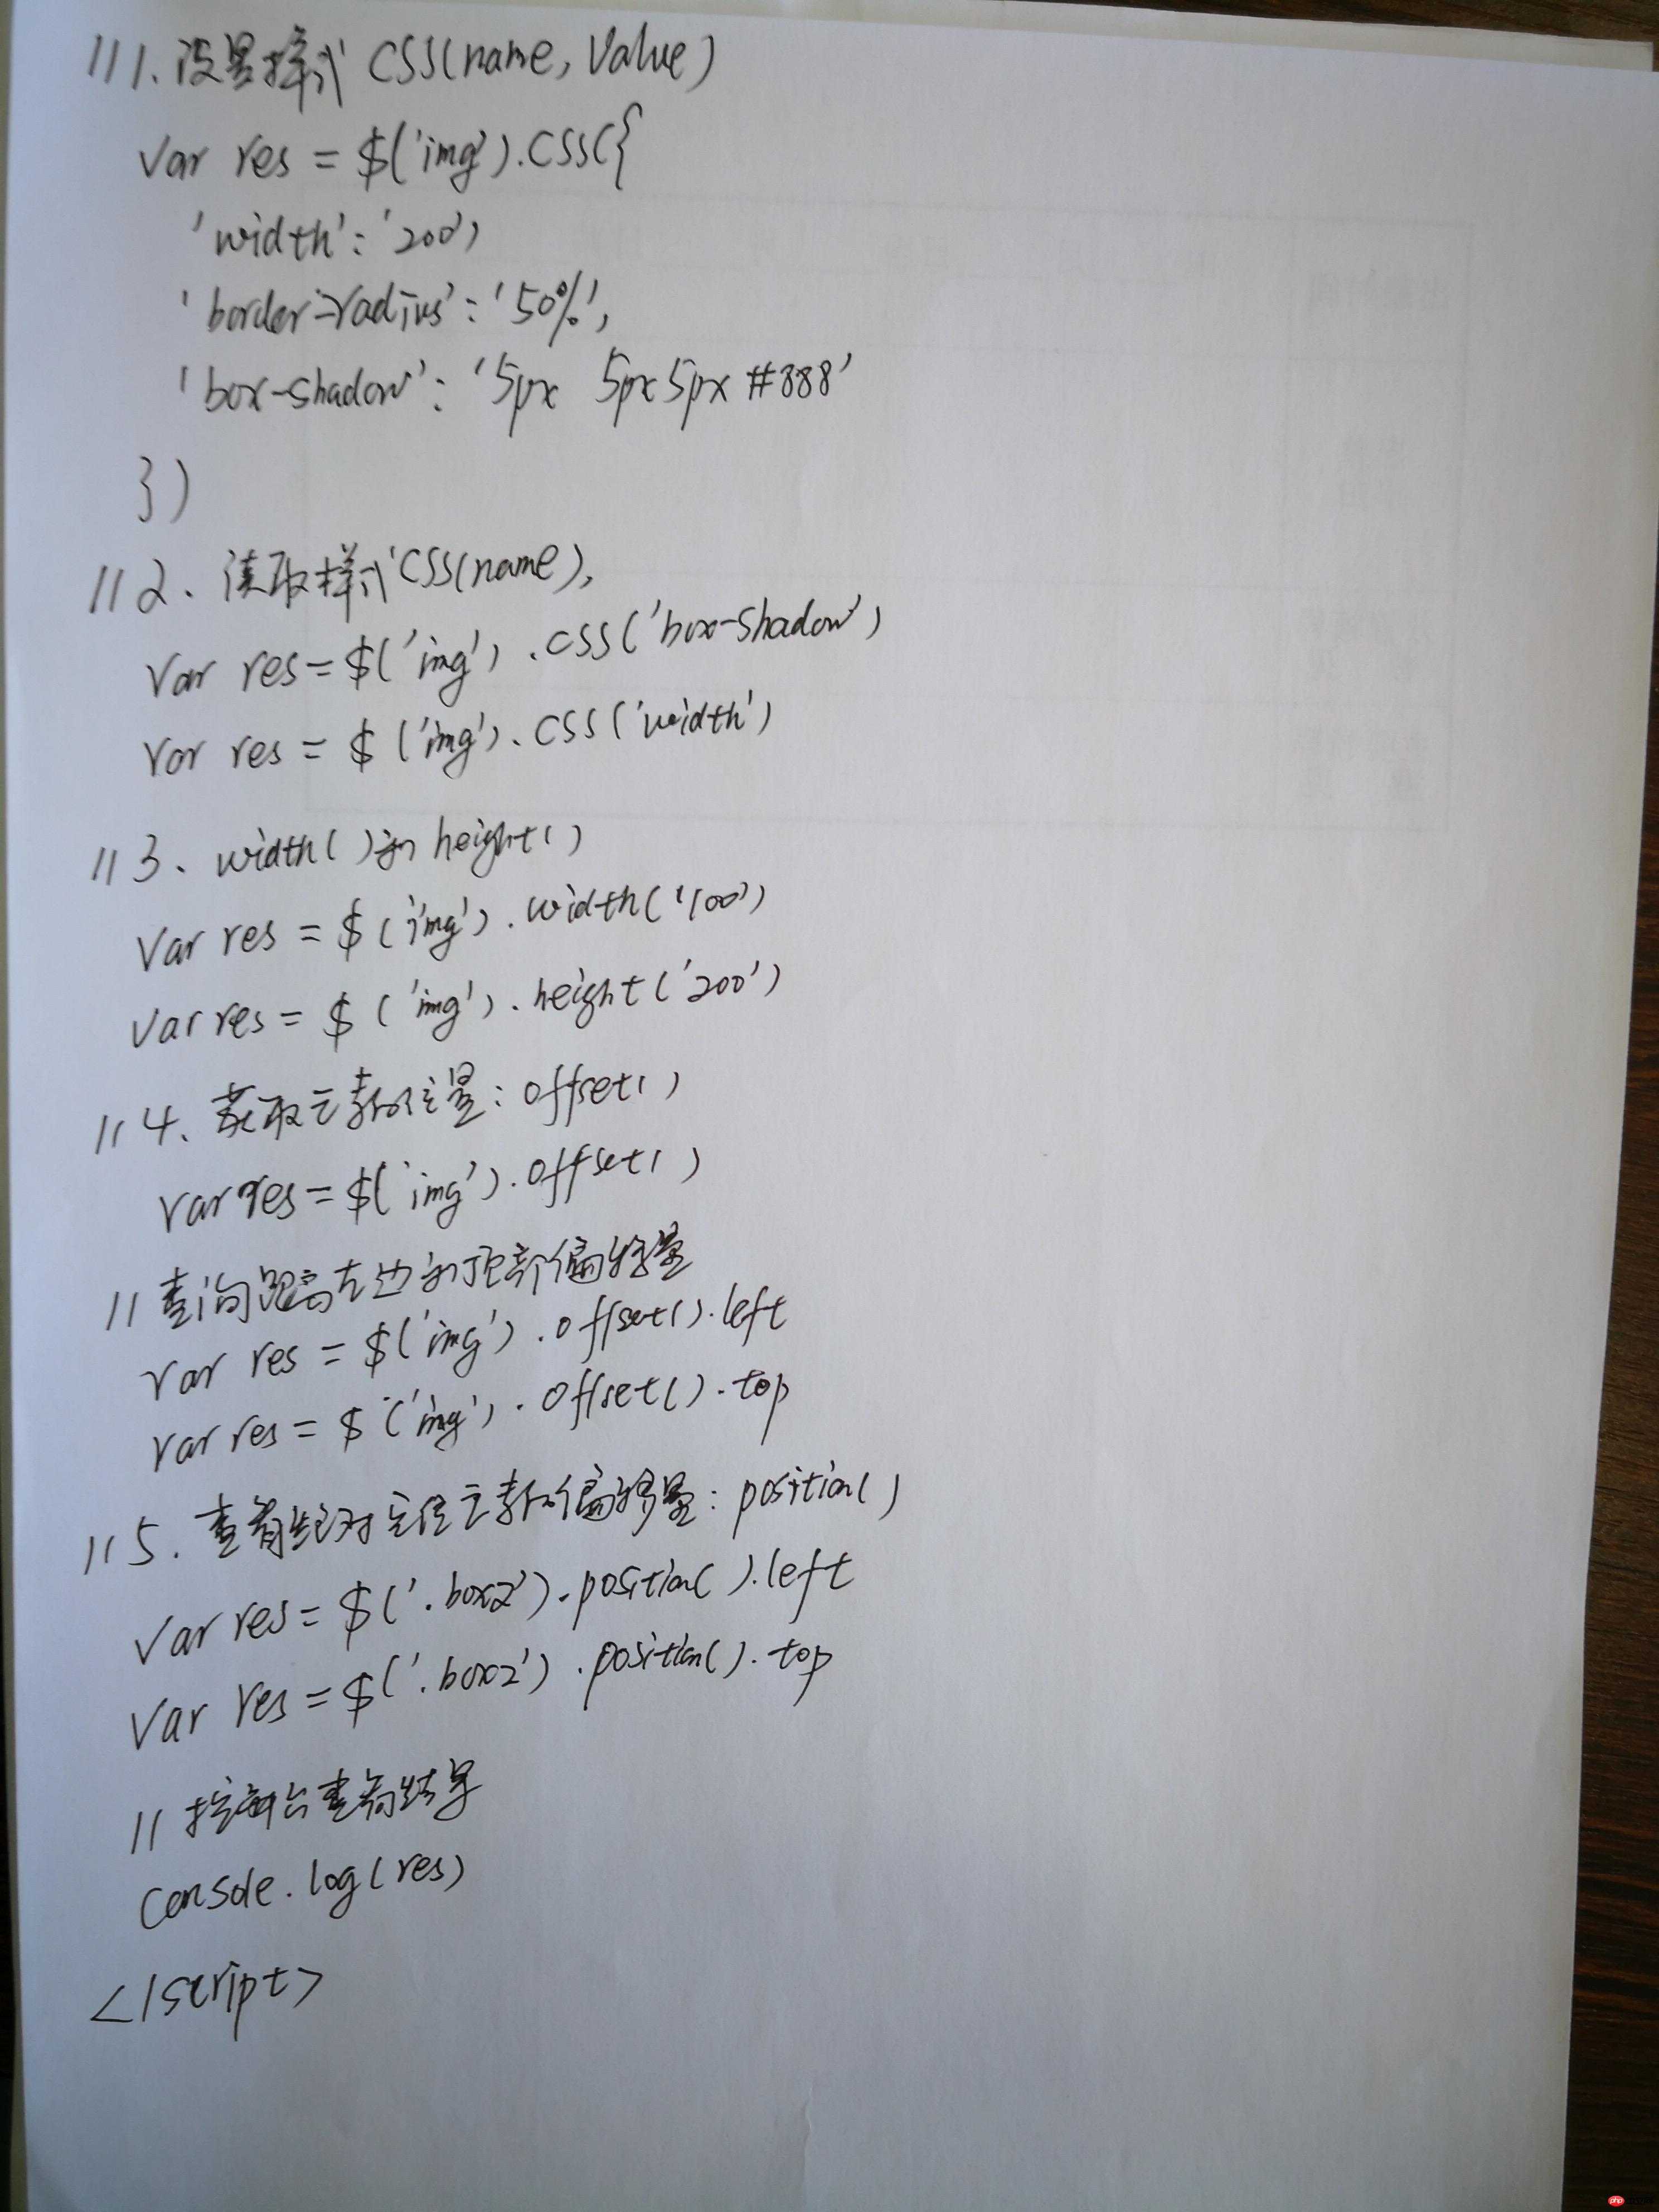 //1.设置样式 CSS(name, Value)
Var res = $('img').CSS({
'width':'200',
'border-radius':'50%',
'box-shadow':'5px 5px 5px #888'
})
//2、读取样式CSS(name),
Var res=$('img').CSS('box-shadow')
Var res = $('img').CSS('width')
//3、width()和height()
Var res = $('img').width('100')
Var res = $('img').height('200')
//4、获取元素的位置:offset()
Var res=$('img').offset()
//查询距离左边和顶部偏移量
Var res = $('img').offset().left
Var res = $('img').offset().top
//5.查看绝对定位元素的偏移量:position()
Var res=$('.box2').position().left
Var res=$('.box2').position().top
//控制台查看结果
Console.log(res)
</script>
php